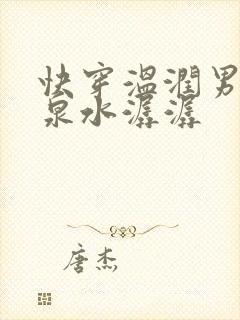 快穿温润男
泉水潺潺
唐杰